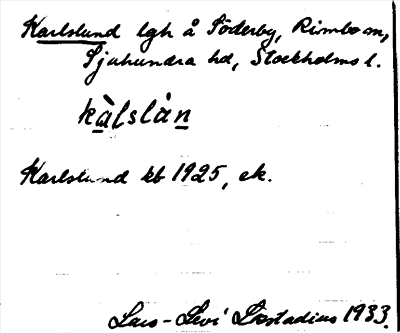 Karlslund lgh å Söderby, Rimbo sn,
Sjuhundra hd, Stockholms l.
kàlslàn
Karlslund kb 1925, ek.
Lars-Levi Læstadius 1933.